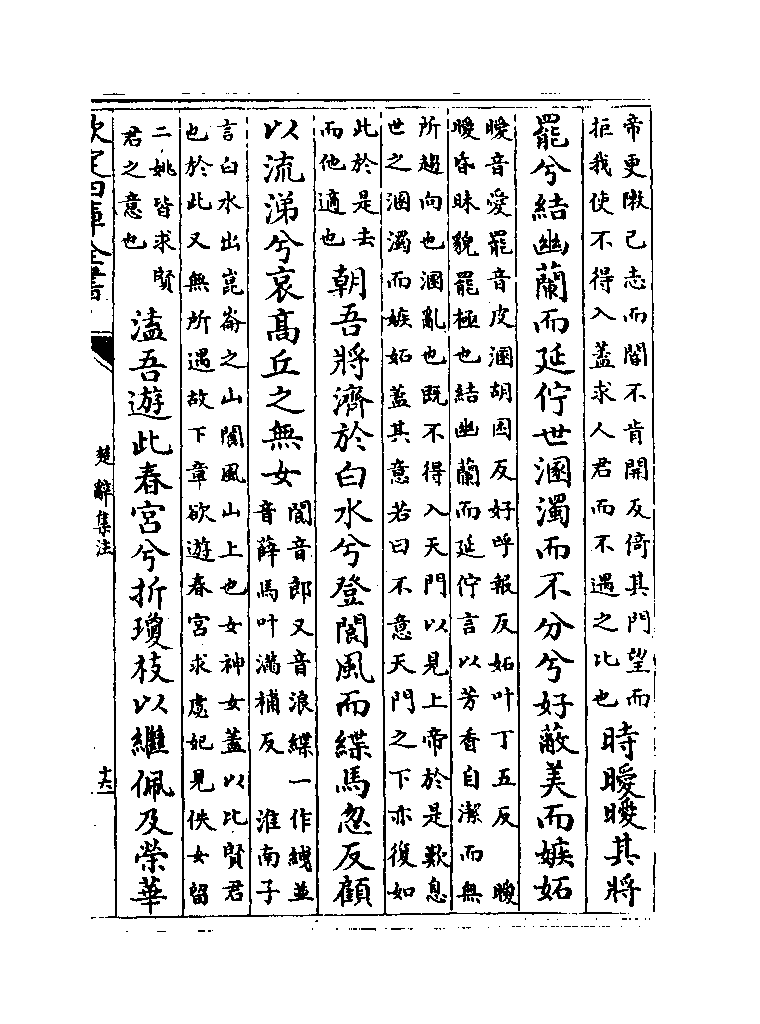 帝更隞己志而閽不肯開反倚其門望而
拒我使不得入蓋求人君而不遇之比也
時曖曖其將
罷兮結幽蘭而延佇世溷濁而不分兮好蔽美而嫉妬
曖音愛罷音皮溷胡困反好呼報反妬叶丁五反　曖
曖昏昧貌罷極也結幽蘭而延佇言以芳香自潔而無
所趨向也溷亂也既不得入天門以見上帝於是歎息
世之溷濁而嫉妬蓋其意若曰不意天門之下亦復如
此於是去
而他適也
朝吾將濟於白水兮登閬風而緤馬忽反顧
以流涕兮哀髙丘之無女
閬音郎又音浪緤一作絏並
音薛馬叶滿補反　淮南子
言白水出崑崙之山閬風山上也女神女蓋以比賢君
也於此又無所遇故下章欲遊春宫求虙妃見佚女留
二姚皆求賢
君之意也
溘吾遊此春宫兮折瓊枝以繼佩及榮華
欽定四庫全書
楚辭集注
十六